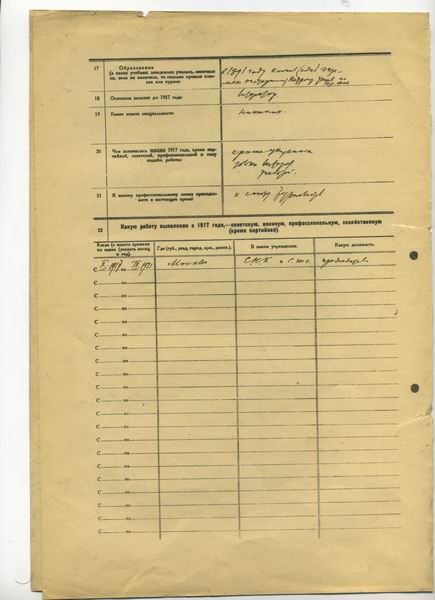 17
Образование
(в каких учебных заведениях учились, окончили
ли, если не окончили, то сколько прошли клас-
сов или курсов)
в 1891 году
18
Основное занятие до 1917 года
литератор
19
Какие знаете специальности
никаких.
20
Чем занимались после 1917 года, кроме пар-
тийной, советской, профессиональной и тому
подобн. работы
кроме
литератур.
работы.
21
К какому профессиональному союзу принадле-
жите в настоящее время
к союзу
22
Какую работу выполняли с 1917 года,—советскую, военную, профессиональную, хозяйственную
(кроме партийной).
Когда (с какого времени
по какое (указать месяц
и год).
Где (губ., уезд, город, арм., дивиз.).
В каком учреждении.
Какую должность.
С X. 1917 по IX. 1921
Москва
СНК и С.Т.О.
председатель
С по
С по
С по
С по
С по
С по
С по
С по
С по
С по
С по
С по
С по
С по